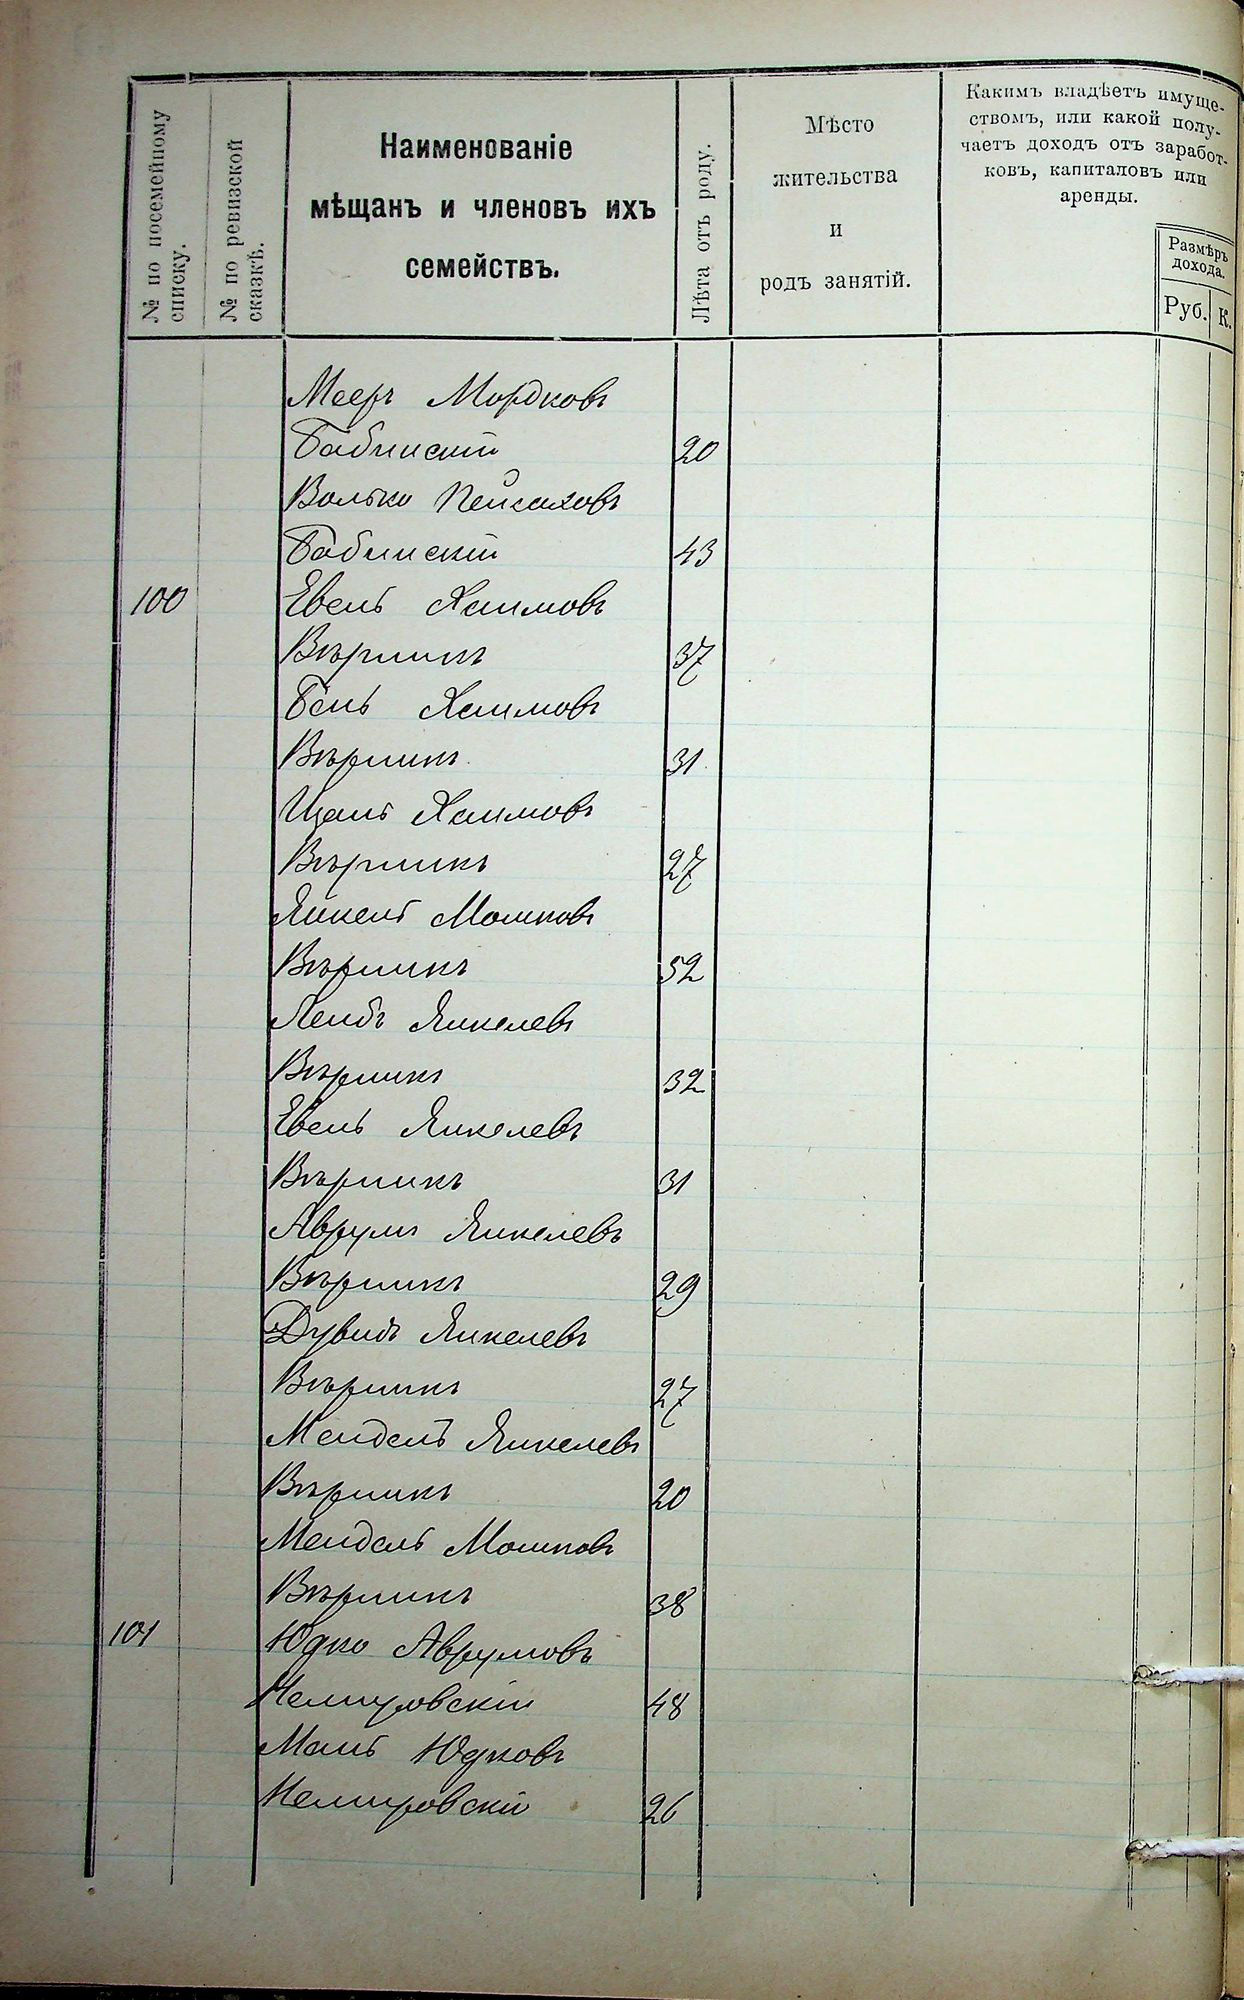 № по посемейному списку.
№ по ревизской сказкѣ.
Наименованіе
мѣщанъ и членовъ ихъ
семействъ.
Лѣта отъ роду.
Мѣсто
жительства
и
родъ занятій.
Какимъ владѣетъ имуще-
ствомъ, или какой полу-
чаетъ доходъ отъ заработ-
ковъ, капиталовъ или
аренды.
Размѣръ
дохода.
Руб. К.
Мееръ Мордковъ
Бабинскій 20
Волько Пейсаховъ
Бабинскій 43
100 Евель Хаимовъ
Вѣрникъ 37
Бень Хаимовъ
Вѣрникъ 31
Шаль Хаимовъ
Вѣрникъ 27
Янкель Мошковъ
Вѣрникъ 52
Лейбъ Янкелевъ
Вѣрникъ 32
Евель Янкелевъ
Вѣрникъ 31
Аврумъ Янкелевъ
Вѣрникъ 29
Дувидъ Янкелевъ
Вѣрникъ 27
Мендель Янкелевъ
Вѣрникъ 20
Мендель Мошковъ
Вѣрникъ 38
101 Юдко Аврумовъ
Немировскій 48
Юдковъ
Немировскій 26